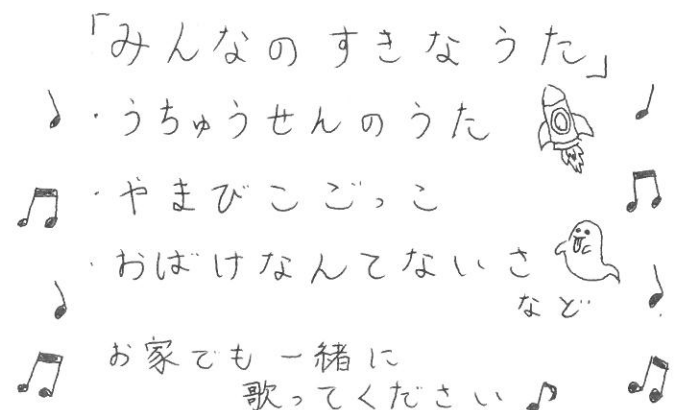 「みんなのすきなうた」
・うちゅうせんのうた
・やまびこごっこ
・おばけなんてないさ
など
お家でも一緒に
歌ってください